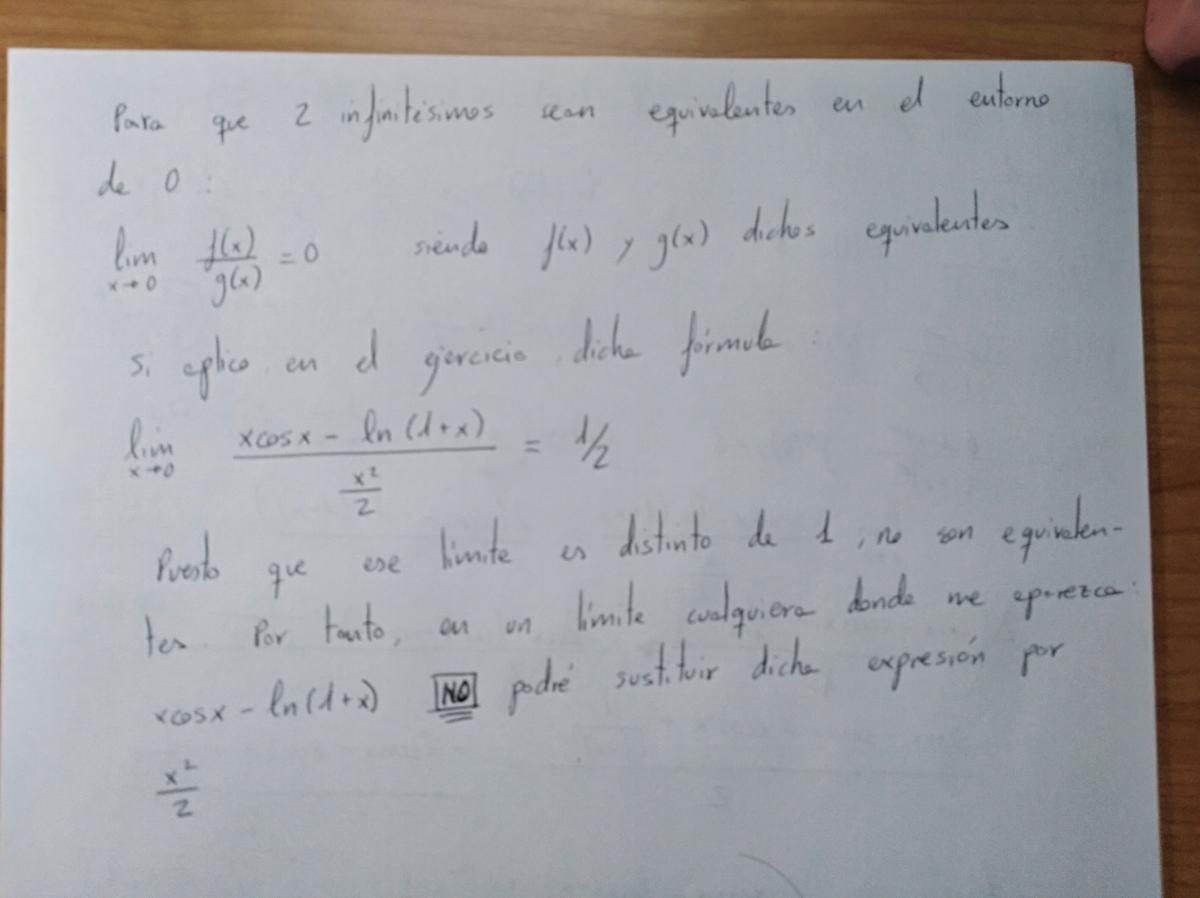 Para que 2 infinitésimos sean equivalentes en el entorno
de 0 :
lim x→0 f(x)/g(x) = 0 siendo f(x) y g(x) dichos equivalentes
Si aplico en el ejercicio dicha fórmula :
lim x→0 (xcosx - ln(1+x))/(x²/2) = 1/2
Puesto que ese límite es distinto de 1, no son equivalen-
tes. Por tanto, en un límite cualquiera donde me aparezca:
xcosx - ln(1+x) NO podré sustituir dicha expresión por
x²/2